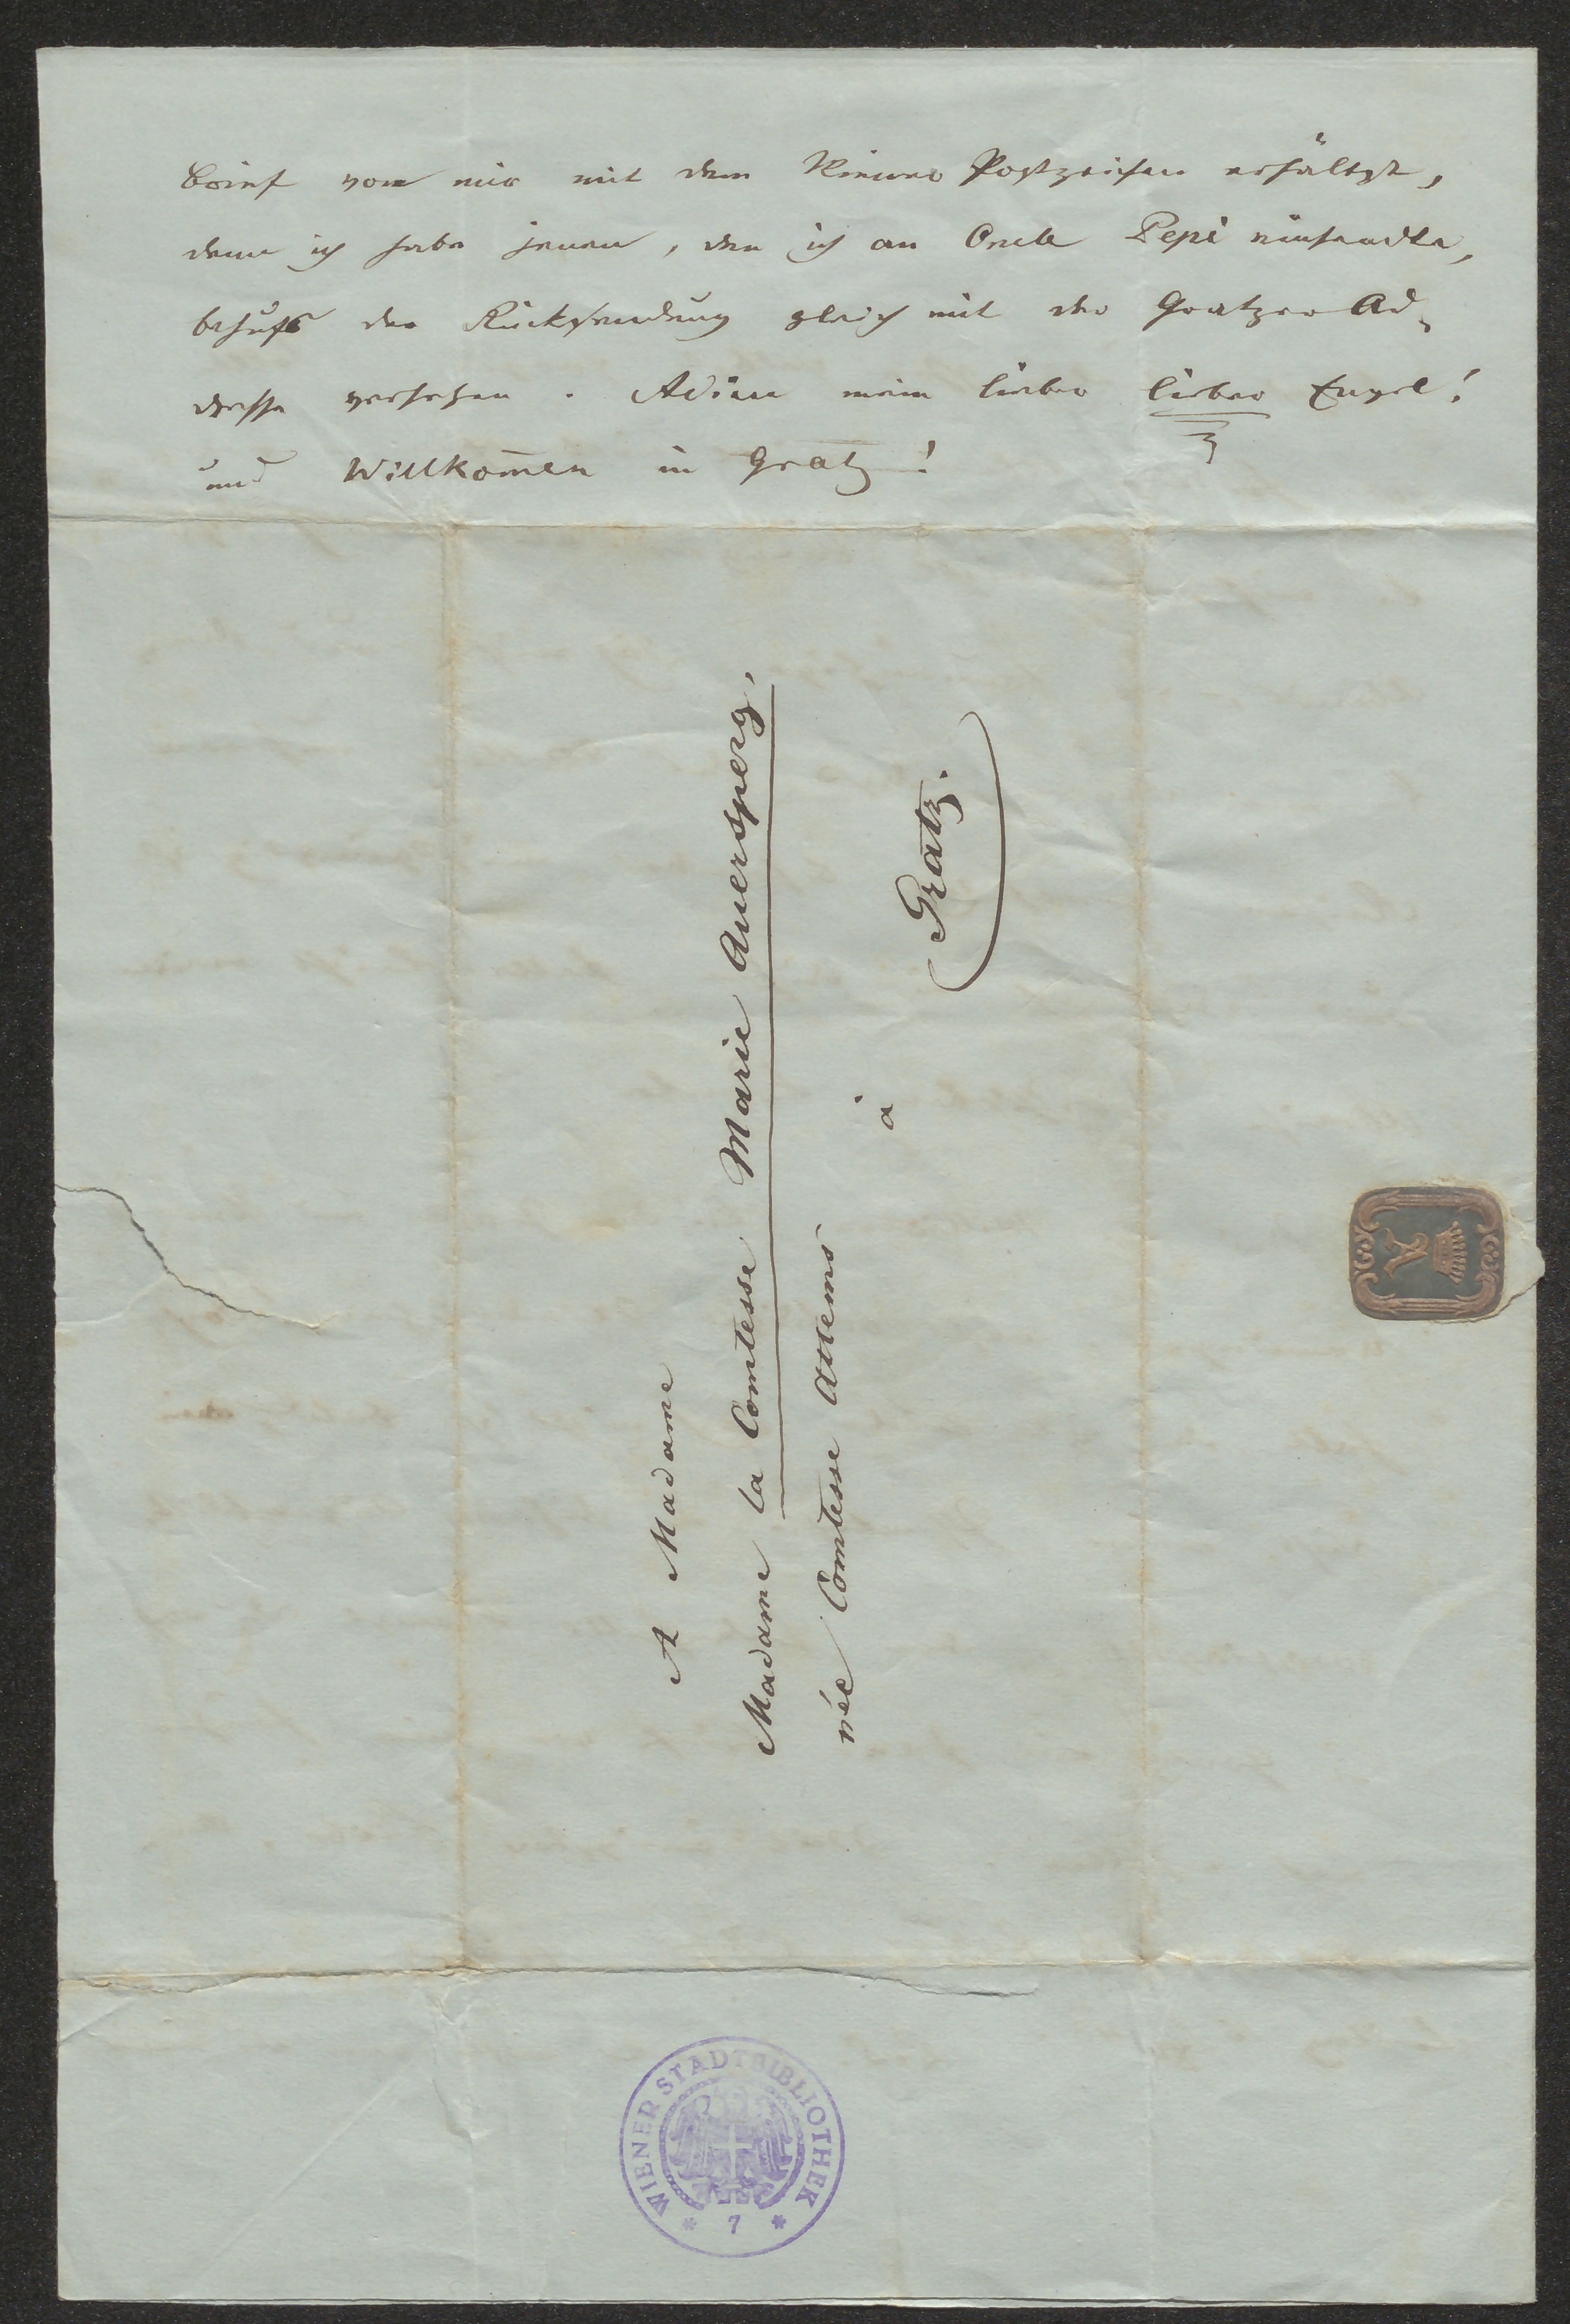 Brief von mir mit dem Wiener Postzeichen erhältst,
denn ich habe jenen, den ich an Onclе Pepi einsandte,
behufs der Rücksendung gleich mit der Gratzer Ad-
dresse versehen. Adieu mein lieber lieber Engel!
und Willkom̅en in Gratz!
A Madame
Madame la Comtesse Marie Auersperg,
née Comtesse Attems
à
Gratz.
A
WIENER STADTBIBLIOTHEK
* 7 *